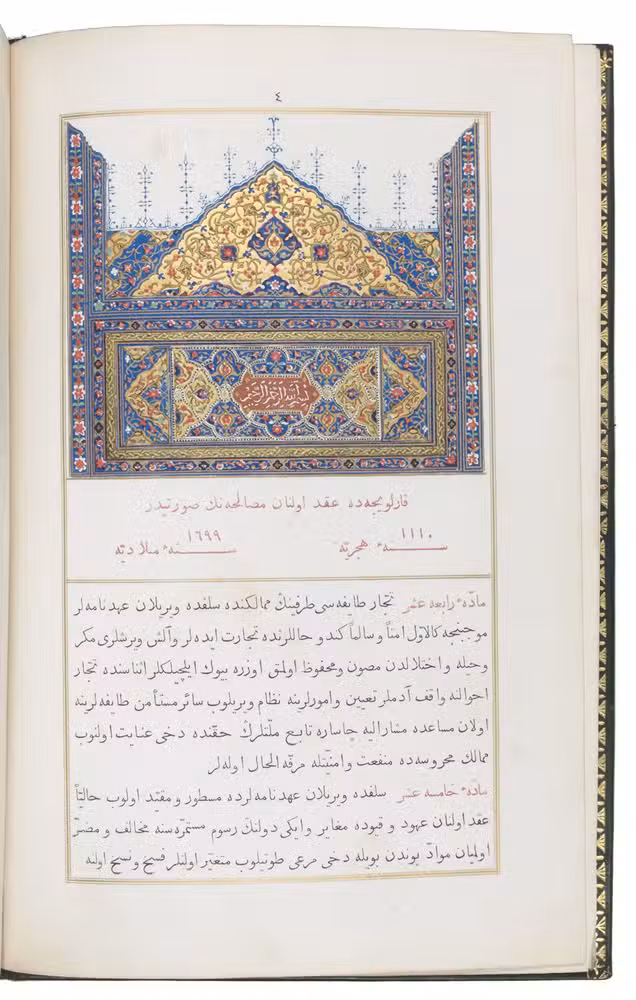 ٤
بسم الله الرحمن الرحيم
قارلوفجه‌ده عقد اولنان مصالحه‌نك صورتيدر
١١١٠ سنهٔ هجريه ١٦٩٩ سنهٔ ميلاديه
مادّهٔ رابعه عشر تجّار طائفه‌سى طرفينڭ ممالكنده سلفده ويريلان عهدنامه‌لر
موجبنجه كالاوّل امناً وسالماً كند و حاللرنده تجارت ايده‌لر وآلش ويرشلرى مكر
وحيله و اختلالدن مصون ومحفوظ اولمق اوزره بيوك ايلچيلكلر اثناسنده تجّار
احوالنه واقف آدملر تعيين وامورلرينه نظام ويريلوب سائر مستأمن طايفه‌لرينه
اولان مساعده مشاراليه چاساره تابع ملّتلرڭ حقنده دخى عنايت اولنوب
ممالك محروسه‌ده منفعت وامنيّتله مرفّه الحال اوله‌لر
مادّهٔ خامسه عشر سلفده ويريلان عهدنامه‌لرده مسطور و مقيّد اولوب حالتاً
عقد اولنان عهود و قيوده مغاير وايكى دولتڭ رسوم مستمرّه‌سنه مخالف و مضرّ
اولميان موادّ بوندن بويله دخى مرعى طوتيلوب متغيّر اولنلر فسخ ونسخ اولنه